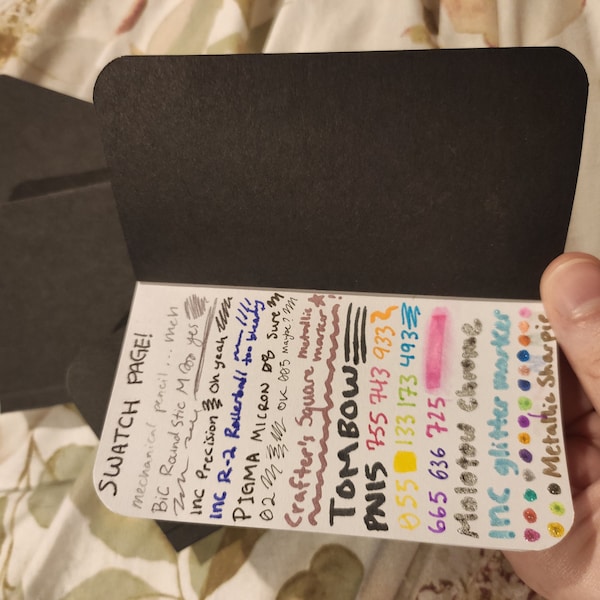 SWATCH PAGE!
mechanical pencil... meh
BiC Round Stic M yes
inc Precision Oh yeah
inc R-2 Rollerball too bleedy
PIGMA MICRON 08 Sure
02 OK 005 Maybe?
Crafter's Square metallic marker!
TOMBOW
PN15 755 743 933
055 133 173 493
665 636 725
Molotow Chrome
inc glitter marker
Metallic Sharpie